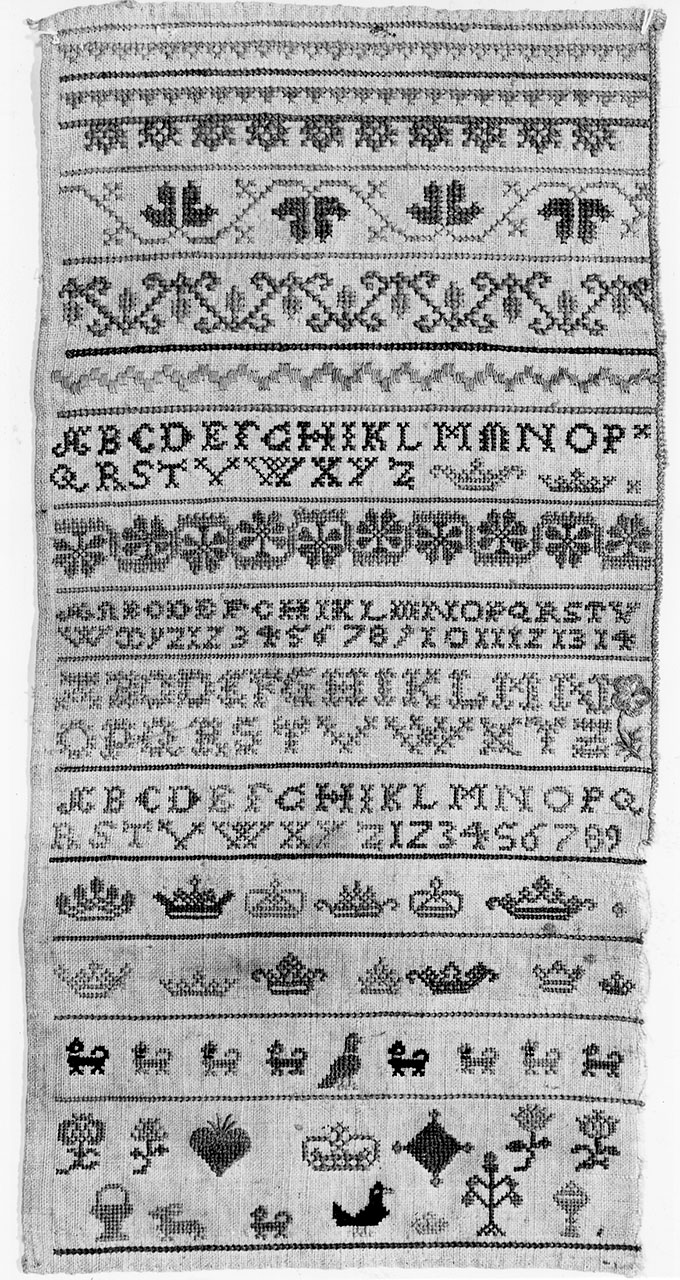 ÆBCDEFGHIKLMMNOP
QRSTVWXYZ
ABCDEFGHIKLMNOPQRSTV
WXYZ1234567891011121314
ABCDEFGHIKLMN
OPQRSTVWXYZ
ÆBCDEFGHIKLMNOPQ
RSTVWXYZ123456789